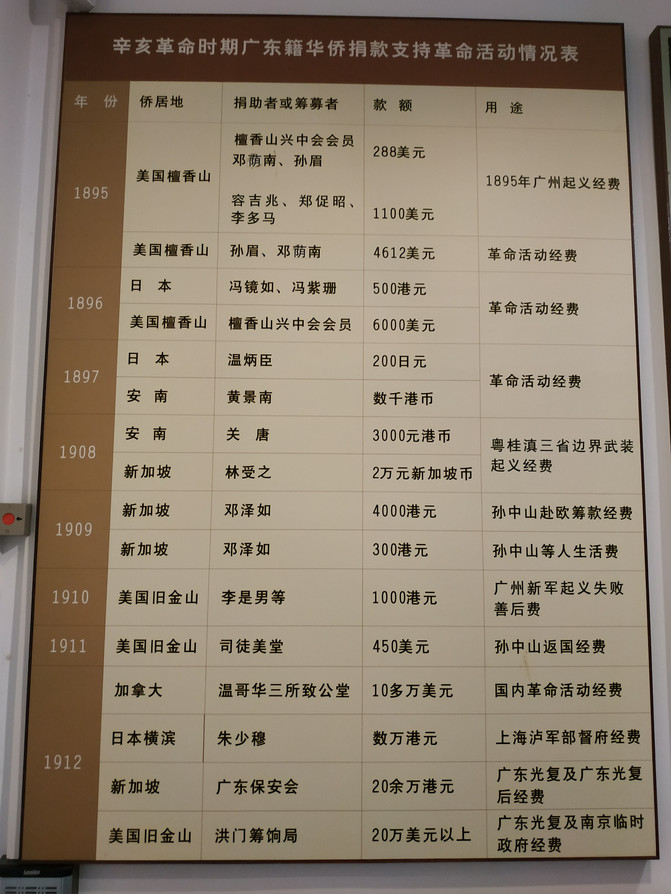 辛亥革命时期广东籍华侨捐款支持革命活动情况表
年 份 侨居地 捐助者或筹募者 款 额 用 途
1895
美国檀香山
檀香山兴中会会员
邓荫南、孙眉
288美元
容吉兆、郑促昭、
李多马
1100美元
1895年广州起义经费
美国檀香山 孙眉、邓荫南 4612美元 革命活动经费
1896
日 本 冯镜如、冯紫珊 500港元
美国檀香山 檀香山兴中会会员 6000美元
革命活动经费
1897
日 本 温炳臣 200日元
安 南 黄景南 数千港币
革命活动经费
1908
安 南 关 唐 3000元港币
新加坡 林受之 2万元新加坡币
粤桂滇三省边界武装
起义经费
1909
新加坡 邓泽如 4000港元 孙中山赴欧筹款经费
新加坡 邓泽如 300港元 孙中山等人生活费
1910 美国旧金山 李是男等 1000港元
广州新军起义失败
善后费
1911 美国旧金山 司徒美堂 450美元 孙中山返国经费
1912
加拿大 温哥华三所致公堂 10多万美元 国内革命活动经费
日本横滨 朱少穆 数万港元 上海泸军部督府经费
新加坡 广东保安会 20余万港元
广东光复及广东光复
后经费
美国旧金山 洪门筹饷局 20万美元以上
广东光复及南京临时
政府经费